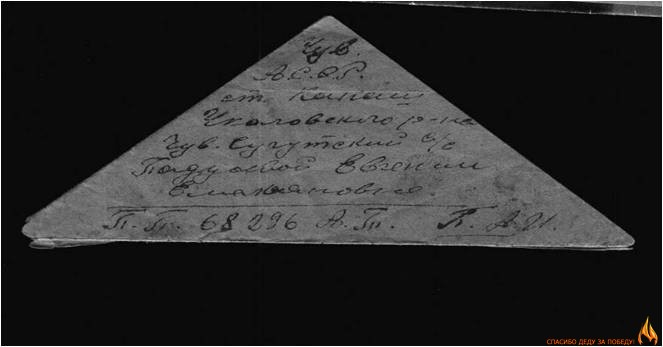 Чув.
А.С.С.Р.
ст. Канаш
Чкаловского р-на
Чув. Сугутский с/с
Евгении
П.П. 68296 А.П. П. А.И.
СПАСИБО ДЕДУ ЗА ПОБЕДУ!